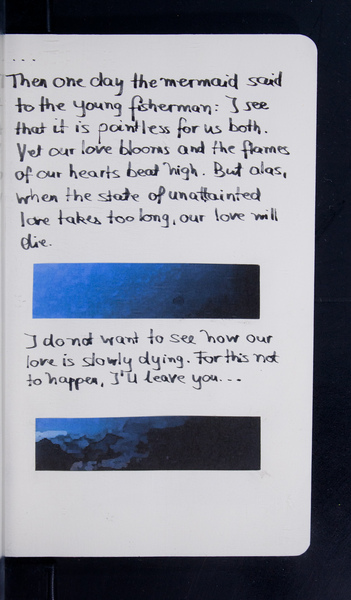 ...
Then one day the mermaid said
to the young fisherman: I see
that it is pointless for us both.
Yet our love blooms and the flames
of our hearts beat high. But alas,
when the state of unattainted
love takes too long, our love will
die.
I do not want to see how our
love is slowly dying. For this not
to happen, I'll leave you...